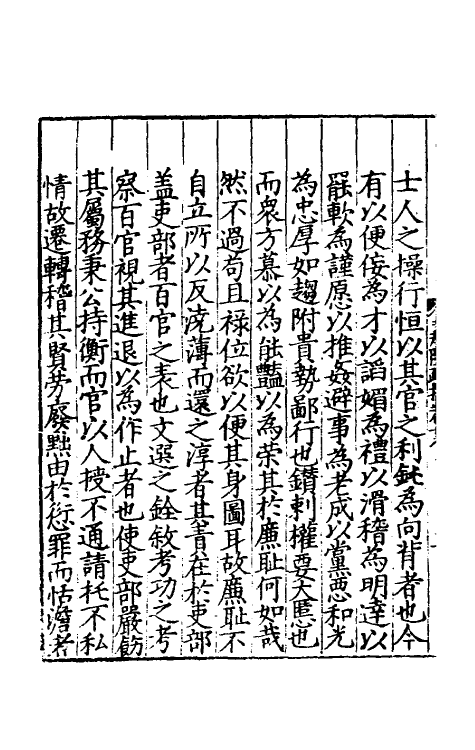 士人之操行恒以其官之利鈍為向背者也今
有以便佞為才以謟媚為禮以滑稽為明達以
罷軟為謹愿以推姦避事為老成以黨惡和光
為忠厚如趨附貴勢鄙行也鑽刺權要大慝也
而衆方慕以為能豔以為榮其於廉耻何如哉
然不過苟且祿位欲以便其身圖耳故廉耻不
自立所以反澆薄而還之淳者其責在於吏部
盖吏部者百官之表也文選之銓敘考功之考
察百官視其進退以為作止者也使吏部嚴飭
其屬務秉公持衡而官以人授不通請托不私
情故遷轉稽其賢勞廢黜由於愆罪而恬澹者